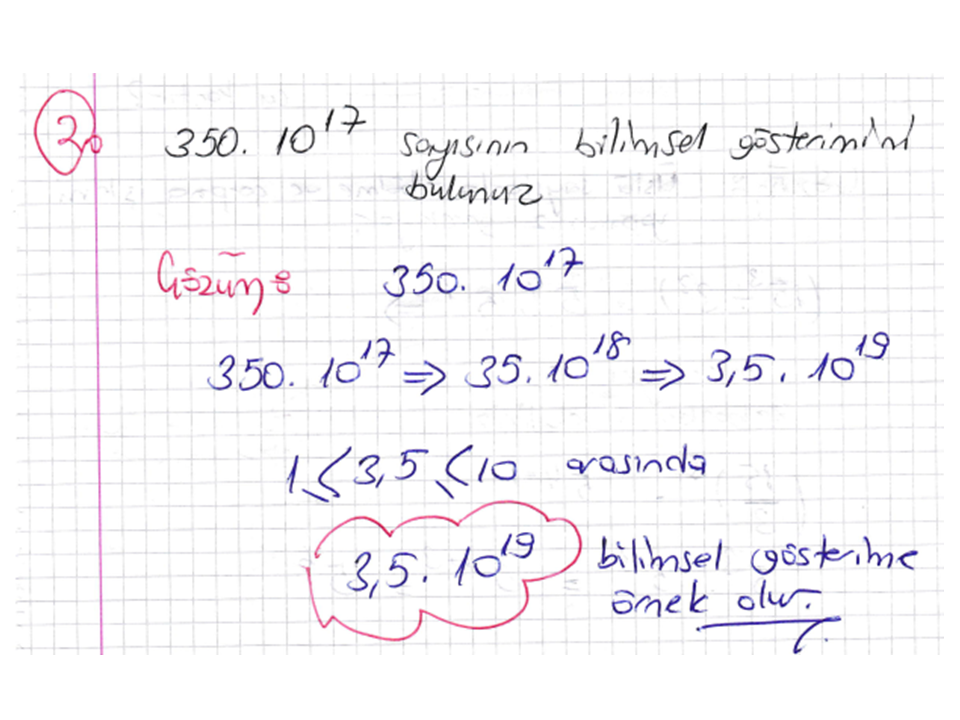 3. 350. 10¹⁷ sayısının bilimsel gösterimini
bulunuz
Çözüm: 350. 10¹⁷
350. 10¹⁷ ⇒ 35. 10¹⁸ ⇒ 3,5. 10¹⁹
1 ≤ 3,5 ≤ 10 arasında
3,5. 10¹⁹ bilimsel gösterime
örnek olur.